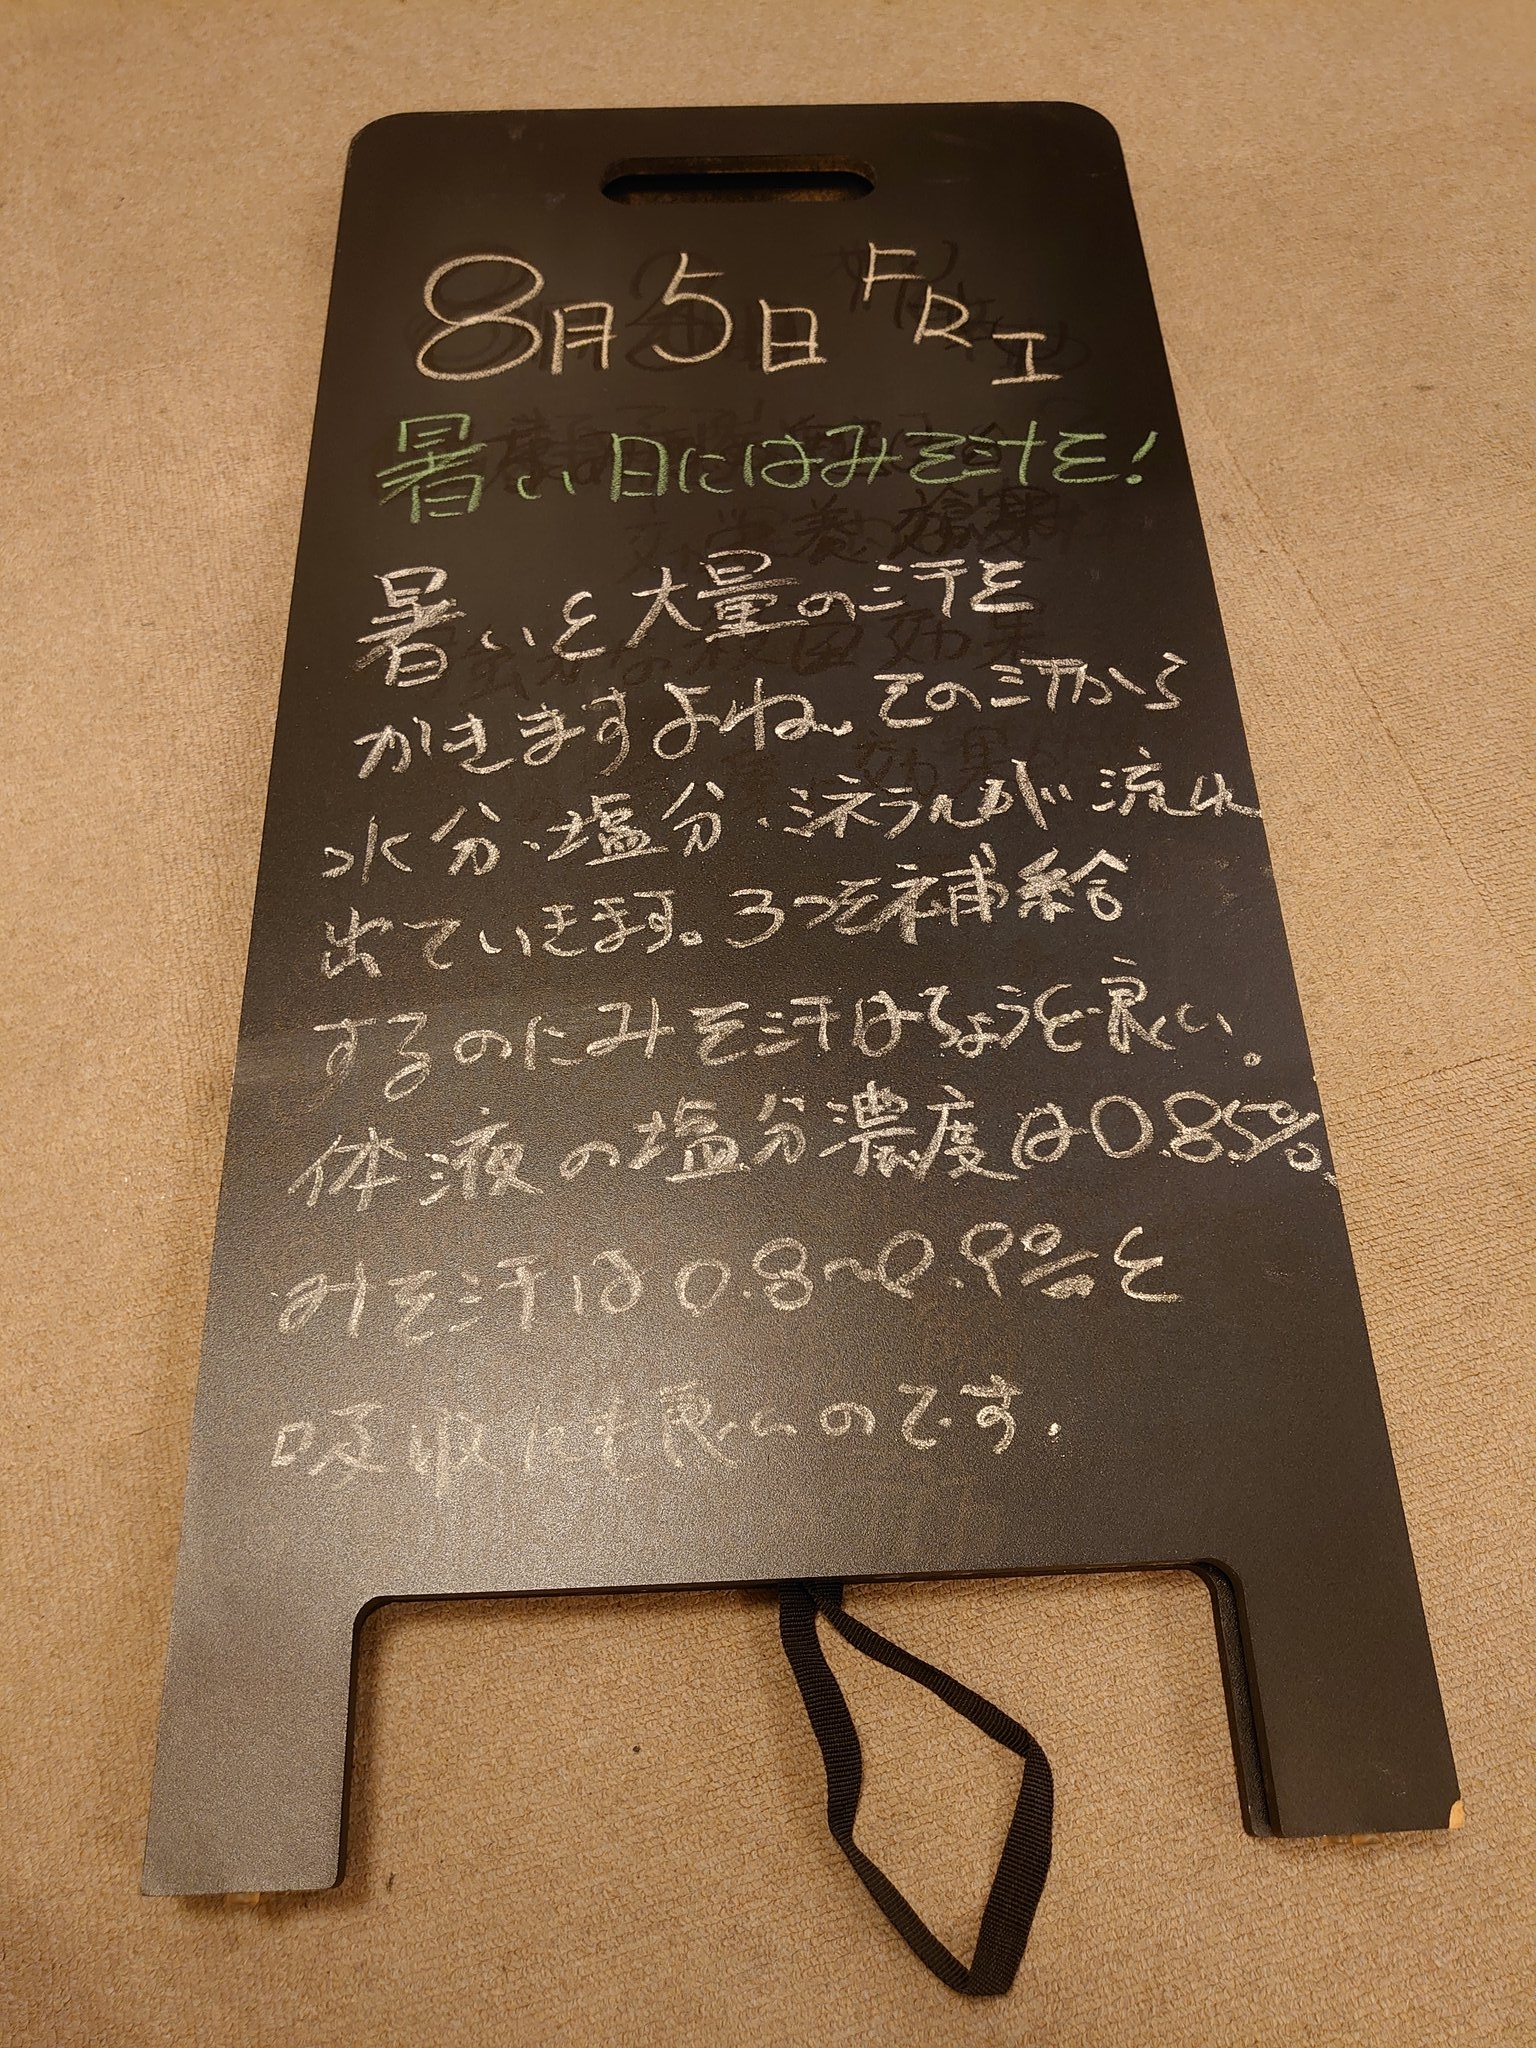 8月5日 FRI
暑い日にはみそ汁を!
暑いと大量の汗を
かきますよね。その汗から
水分・塩分・ミネラルが流れ
出ていきます。3つを補給
するのにみそ汁はちょうど良い。
体液の塩分濃度は0.85%。
みそ汁は0.8〜0.9%と
吸収にも良いのです.